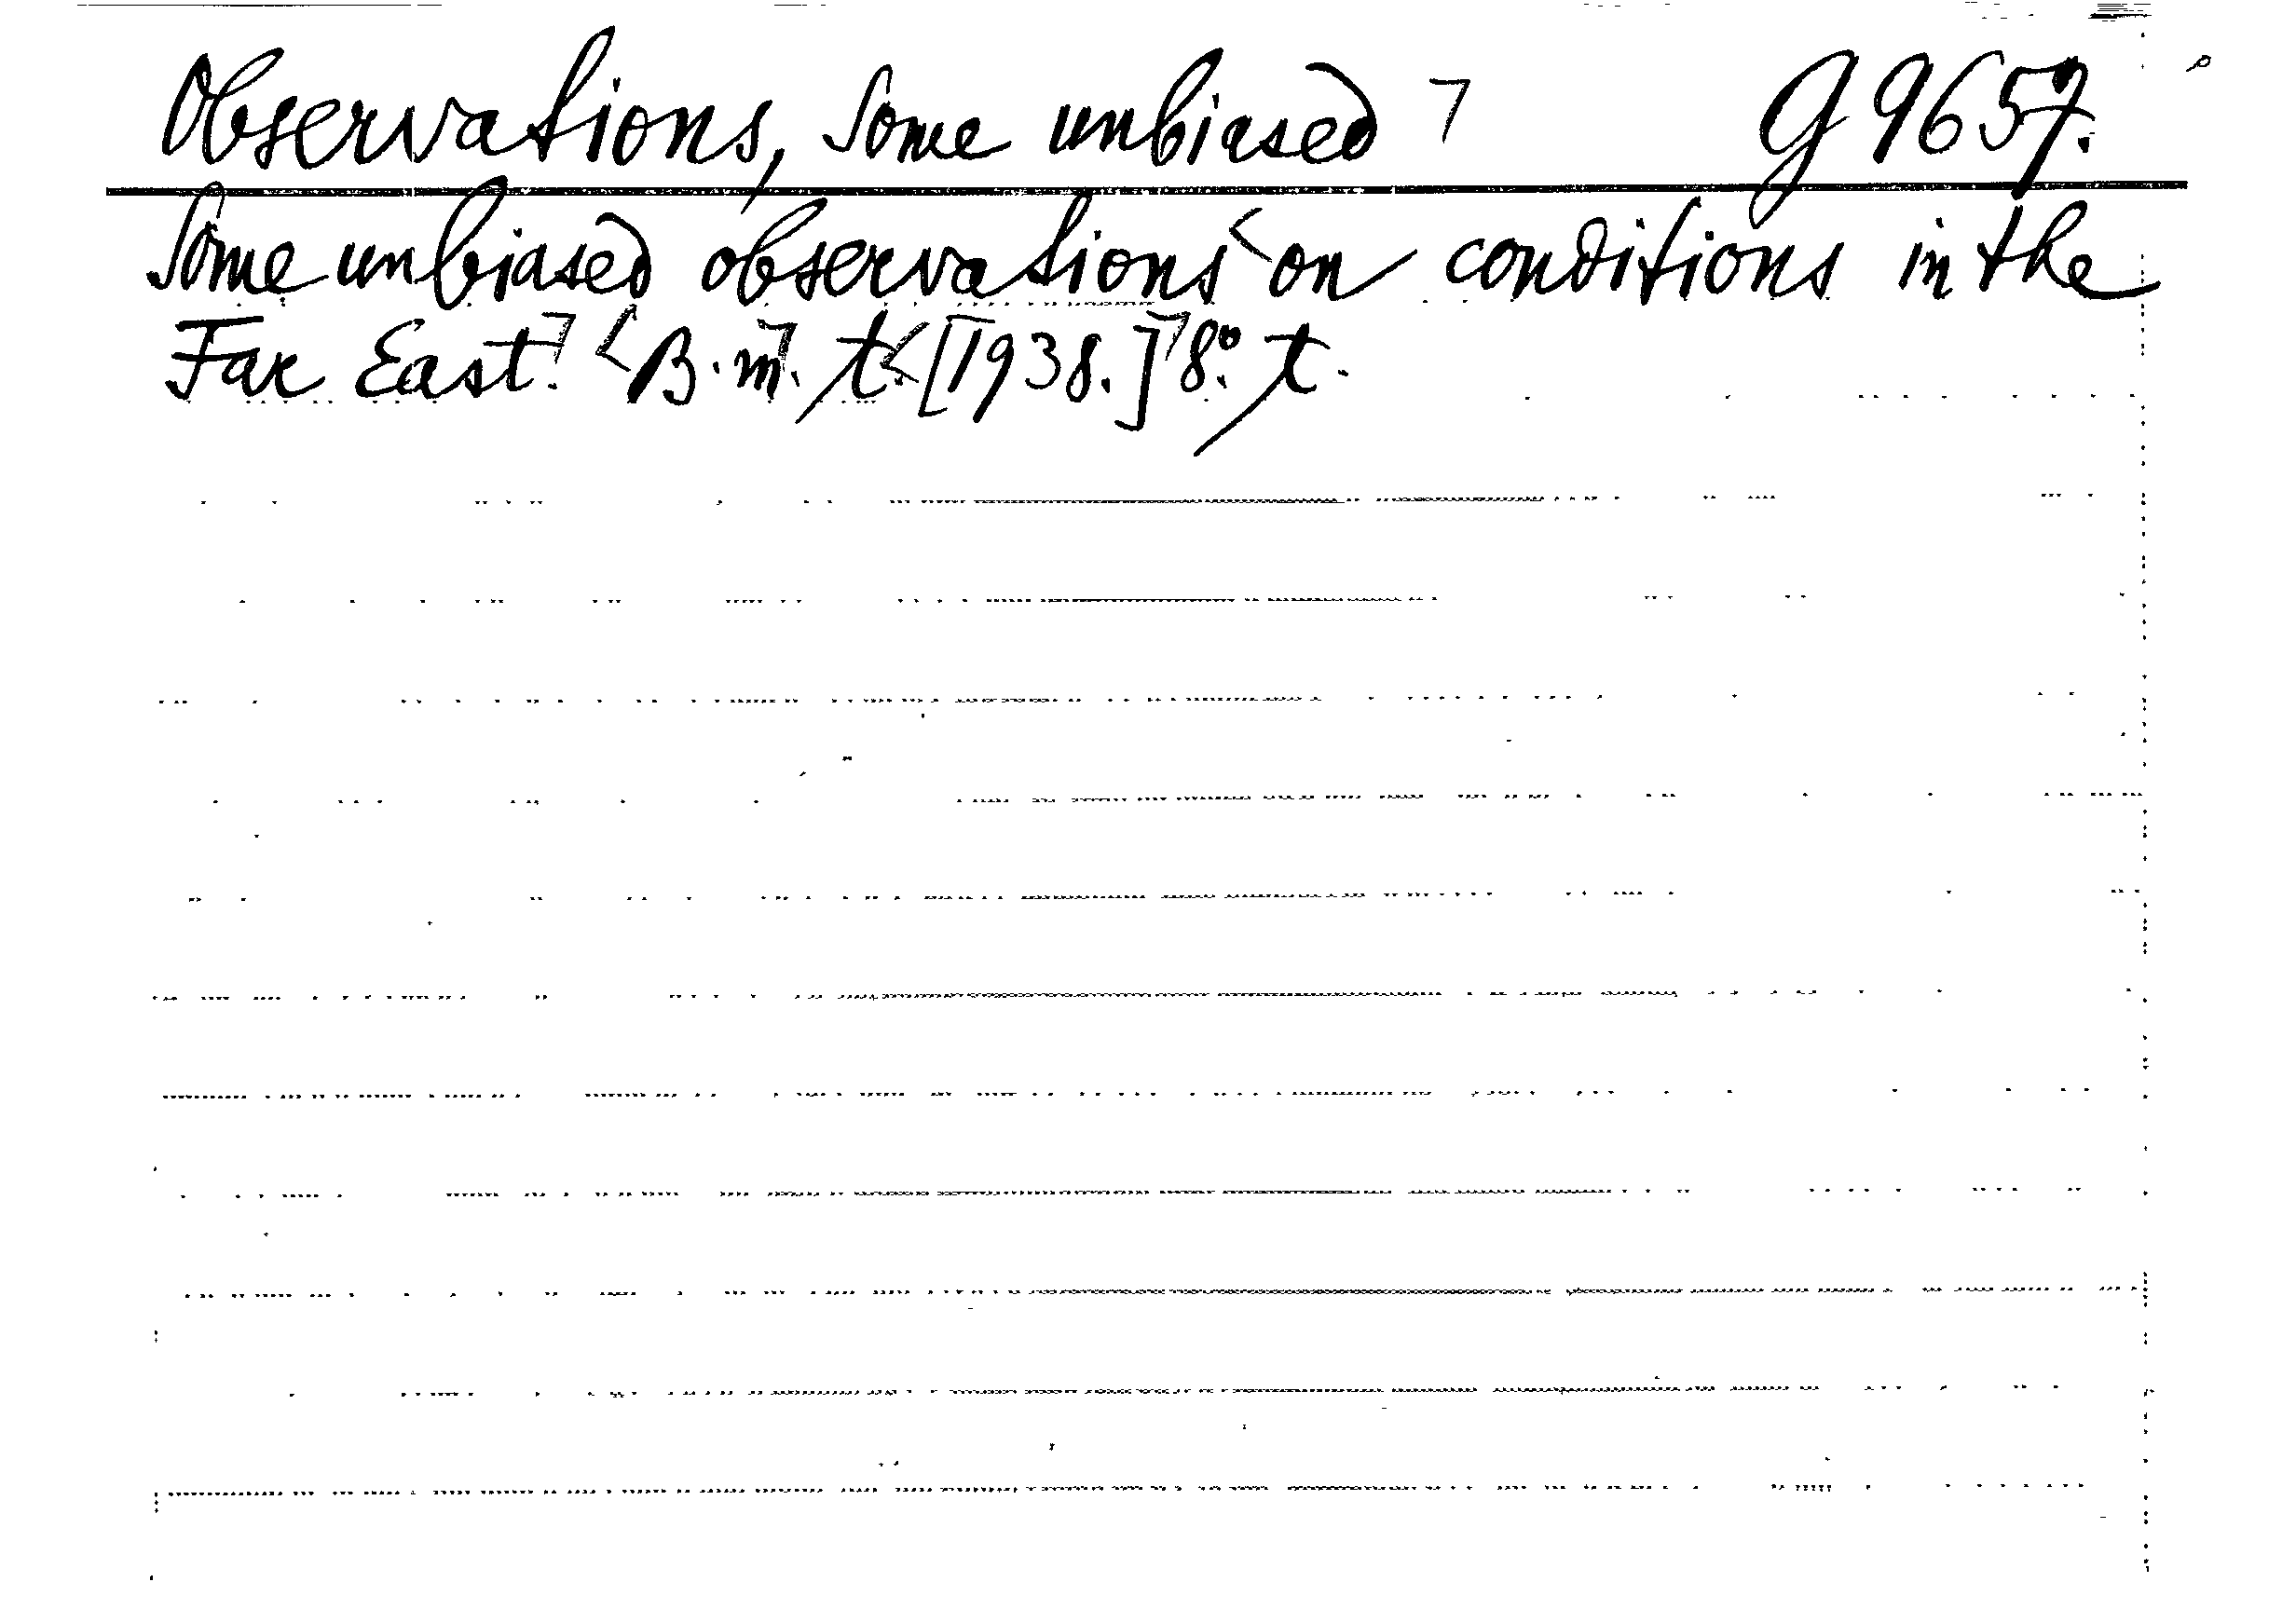 Observations, Some unbiased ⌝ G 9657.
Some unbiased observations < on conditions in the
Far East.⌝ < B. m.⌝ t. < [1938.]⌝ 8.° t.